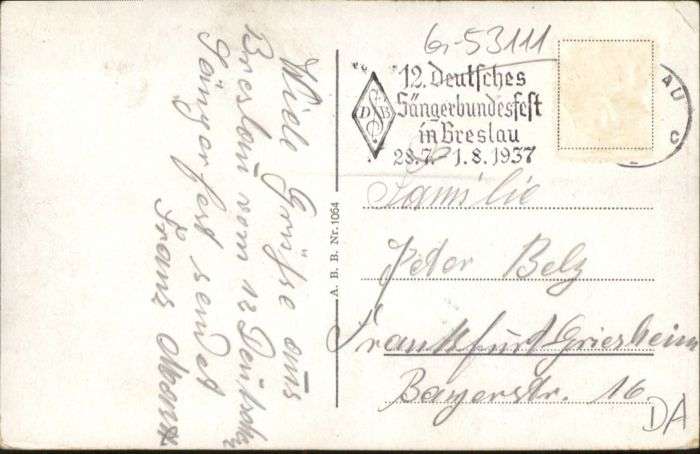 Viele Grüße aus
Breslau vom 12 Deutschen
Sängerfest sendet
Franz
A. B. B. Nr. 1064
Gr-53111
12. Deutsches
Sängerbundesfest
in Breslau
28.7.-1.8.1937
DSB
AU
C
Familie
Peter Belz
Frankfurt Griesheim
Bayerstr. 16
DA